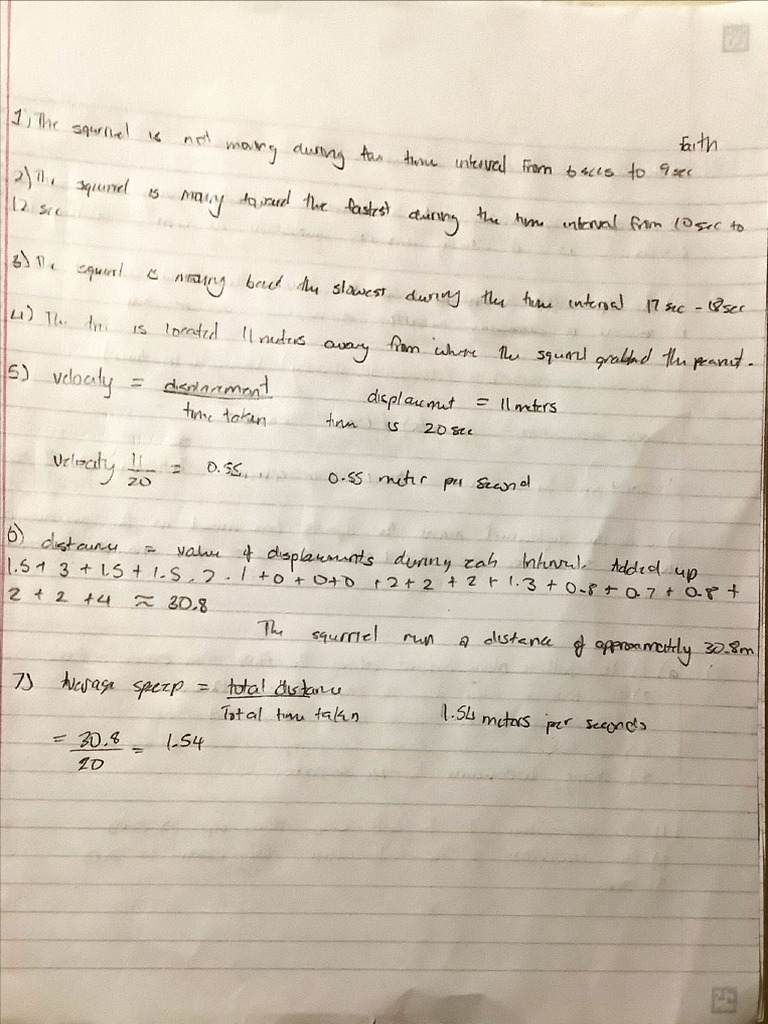 Faith
1) The squrriel is not moving during the time interval from 6 secs to 9 sec
2) The squirrel is moving toward the fastest during the time interval from 10 sec to
12 sec
3) The squirrel is moving back the slowest during the time interval 17 sec - 18 sec
4) The tree is located 11 meters away from where the squirrel grabbed the peanut.
5) velocity = displacement / time taken displacement = 11 meters
time is 20 sec
velocity 11/20 = 0.55 0.55 meter per second
6) distance = value of displacments during each Interval. Added up
1.5 + 3 + 1.5 + 1.5 . 2 . 1 + 0 + 0 + 0 + 2 + 2 + 2 + 1.3 + 0.8 + 0.7 + 0.8 +
2 + 2 + 4 ≈ 30.8
The squrriel run a distance of approximately 30.8m
7) Average speed = total distance / Total time taken 1.54 meters per seconds
= 30.8/20 = 1.54